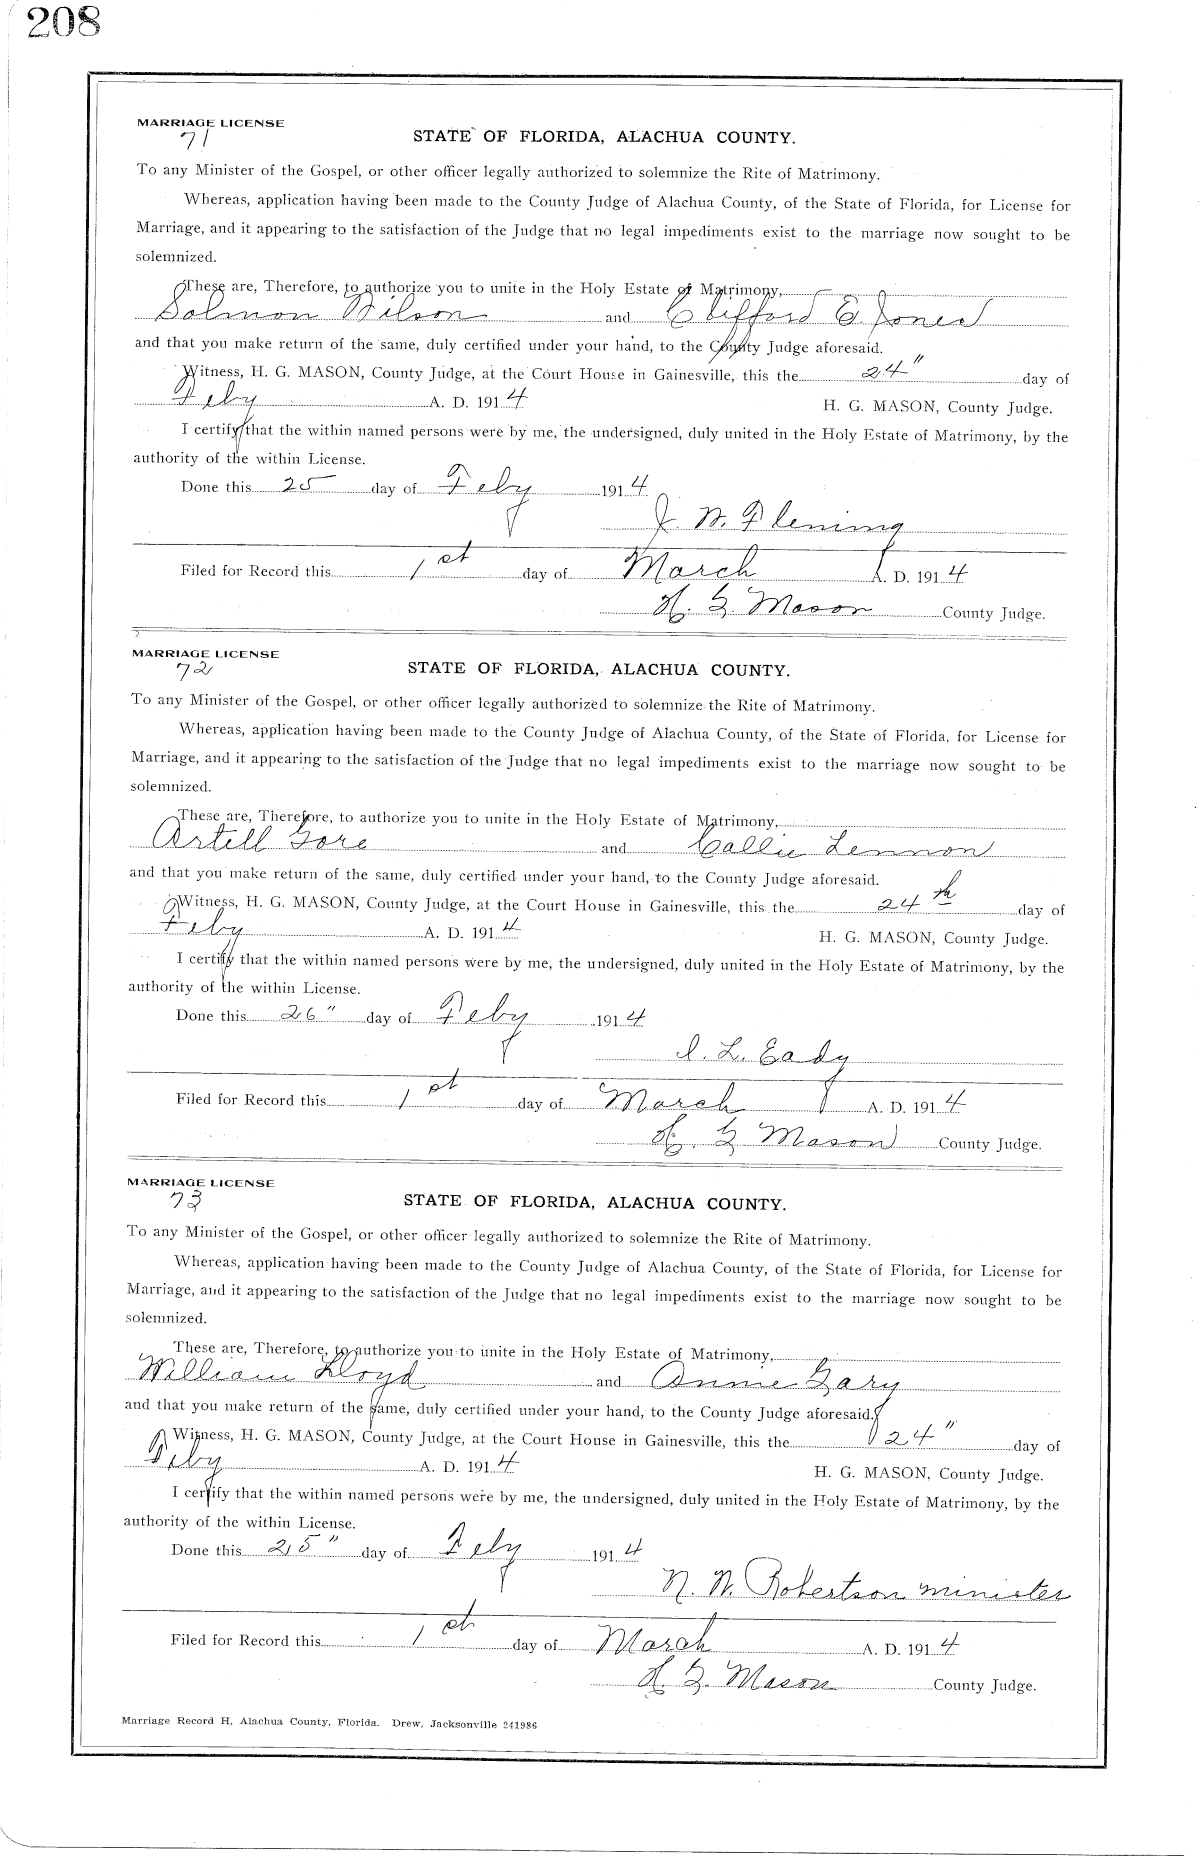 208
MARRIAGE LICENSE
71
STATE OF FLORIDA, ALACHUA COUNTY.
To any Minister of the Gospel, or other officer legally authorized to solemnize the Rite of Matrimony.
Whereas, application having been made to the County Judge of Alachua County, of the State of Florida, for License for
Marriage, and it appearing to the satisfaction of the Judge that no legal impediments exist to the marriage now sought to be
solemnized.
These are, Therefore, to authorize you to unite in the Holy Estate of Matrimony,
Solmon Wilson and Clifford E. Jones
and that you make return of the same, duly certified under your hand, to the County Judge aforesaid.
Witness, H. G. MASON, County Judge, at the Court House in Gainesville, this the 24" day of
Feby A. D. 1914 H. G. MASON, County Judge.
I certify that the within named persons were by me, the undersigned, duly united in the Holy Estate of Matrimony, by the
authority of the within License.
Done this 25 day of Feby 1914
J. W. Fleming
Filed for Record this 1st day of March A. D. 1914
H. G. Mason County Judge.
MARRIAGE LICENSE
72
STATE OF FLORIDA, ALACHUA COUNTY.
To any Minister of the Gospel, or other officer legally authorized to solemnize the Rite of Matrimony.
Whereas, application having been made to the County Judge of Alachua County, of the State of Florida, for License for
Marriage, and it appearing to the satisfaction of the Judge that no legal impediments exist to the marriage now sought to be
solemnized.
These are, Therefore, to authorize you to unite in the Holy Estate of Matrimony,
Artell Gore and Callie Lennon
and that you make return of the same, duly certified under your hand, to the County Judge aforesaid.
Witness, H. G. MASON, County Judge, at the Court House in Gainesville, this the 24th day of
Feby A. D. 1914 H. G. MASON, County Judge.
I certify that the within named persons were by me, the undersigned, duly united in the Holy Estate of Matrimony, by the
authority of the within License.
Done this 26" day of Feby 1914
I. L. Eady
Filed for Record this 1st day of March A. D. 1914
H. G Mason County Judge.
MARRIAGE LICENSE
73
STATE OF FLORIDA, ALACHUA COUNTY.
To any Minister of the Gospel, or other officer legally authorized to solemnize the Rite of Matrimony.
Whereas, application having been made to the County Judge of Alachua County, of the State of Florida, for License for
Marriage, and it appearing to the satisfaction of the Judge that no legal impediments exist to the marriage now sought to be
solemnized.
These are, Therefore, to authorize you to unite in the Holy Estate of Matrimony,
William Lloyd and Annie Gary
and that you make return of the same, duly certified under your hand, to the County Judge aforesaid.
Witness, H. G. MASON, County Judge, at the Court House in Gainesville, this the 24" day of
Feby A. D. 1914 H. G. MASON, County Judge.
I certify that the within named persons were by me, the undersigned, duly united in the Holy Estate of Matrimony, by the
authority of the within License.
Done this 25" day of Feby 1914
N. W. Robertson minister
Filed for Record this 1st day of March A. D. 1914
H. G. Mason County Judge.
Marriage Record H, Alachua County, Florida. Drew, Jacksonville 241986